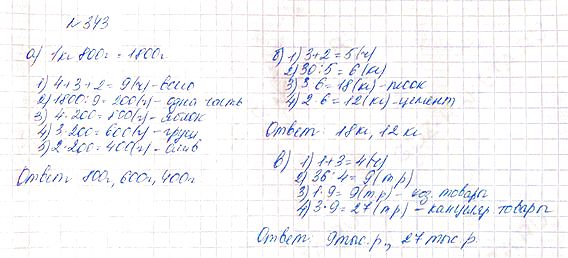 №343
а) 1кг 800г = 1800г
1) 4+3+2=9(ч)-всего
2) 1800:9=200(г)-одна часть
3) 4·200=800(г)-яблок
4) 3·200=600(г)-груш
5) 2·200=400(г)-слив
Ответ: 800г, 600г, 400г
б) 1) 3+2=5(ч)
2) 30:5=6(кг)
3) 3·6=18(кг)-песок
4) 2·6=12(кг)-цемент
Ответ: 18кг, 12кг
в) 1) 1+3=4(ч)
2) 36:4=9(т.р)
3) 1·9=9(т.р)- хоз. товары
4) 3·9=27(т.р)-канцеляр. товары
Ответ: 9тыс.р., 27тыс.р.